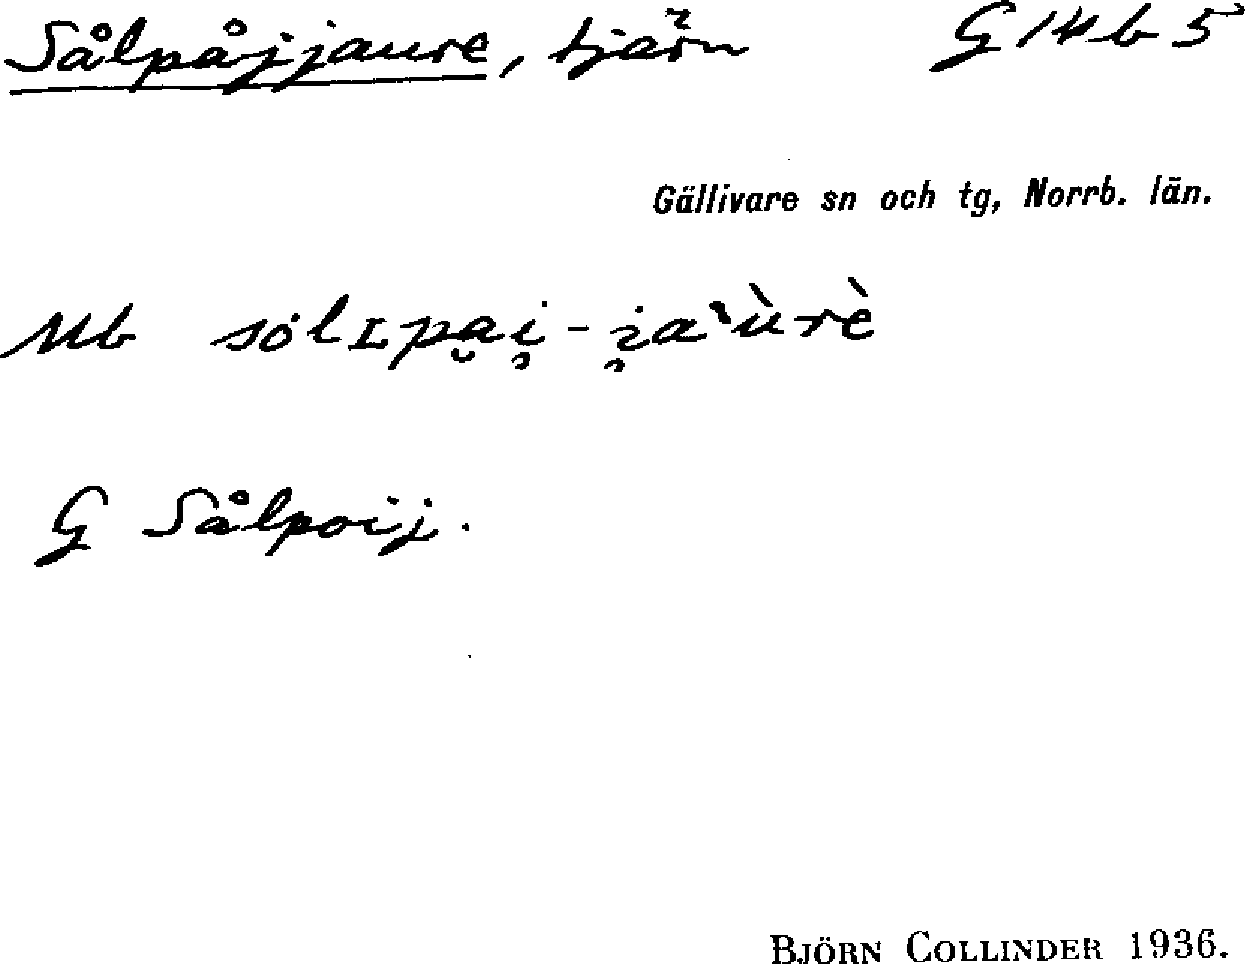 Sålpåjjaure, tjärn G 14 b 5
Gällivare sn och tg, Norrb. län.
Mb sȯlɪpa̮i̯-i̯a`ùrè
G Sålpoij.
BJÖRN COLLINDER 1936.